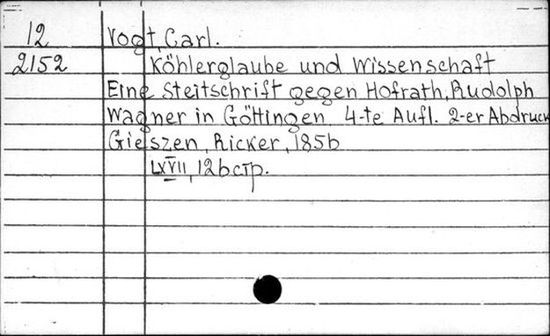 12 Vogt, Carl.
2152 Köhlerglaube und Wissenschaft
Eine Steitschrift gegen Hofrath, Rudolph
Wagner in Göttingen 4-te Aufl. 2-er Abdruck
Gieszen, Ricker, 1856
LXVII, 126 стр.